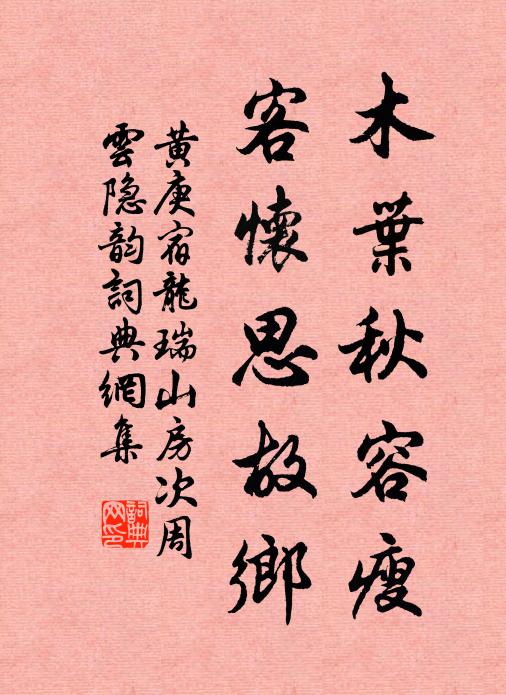 木葉秋容瘦
客懷思故鄉
黃庚宿龍瑞山房次周
雲隐韵詞典網集
詞典
网印